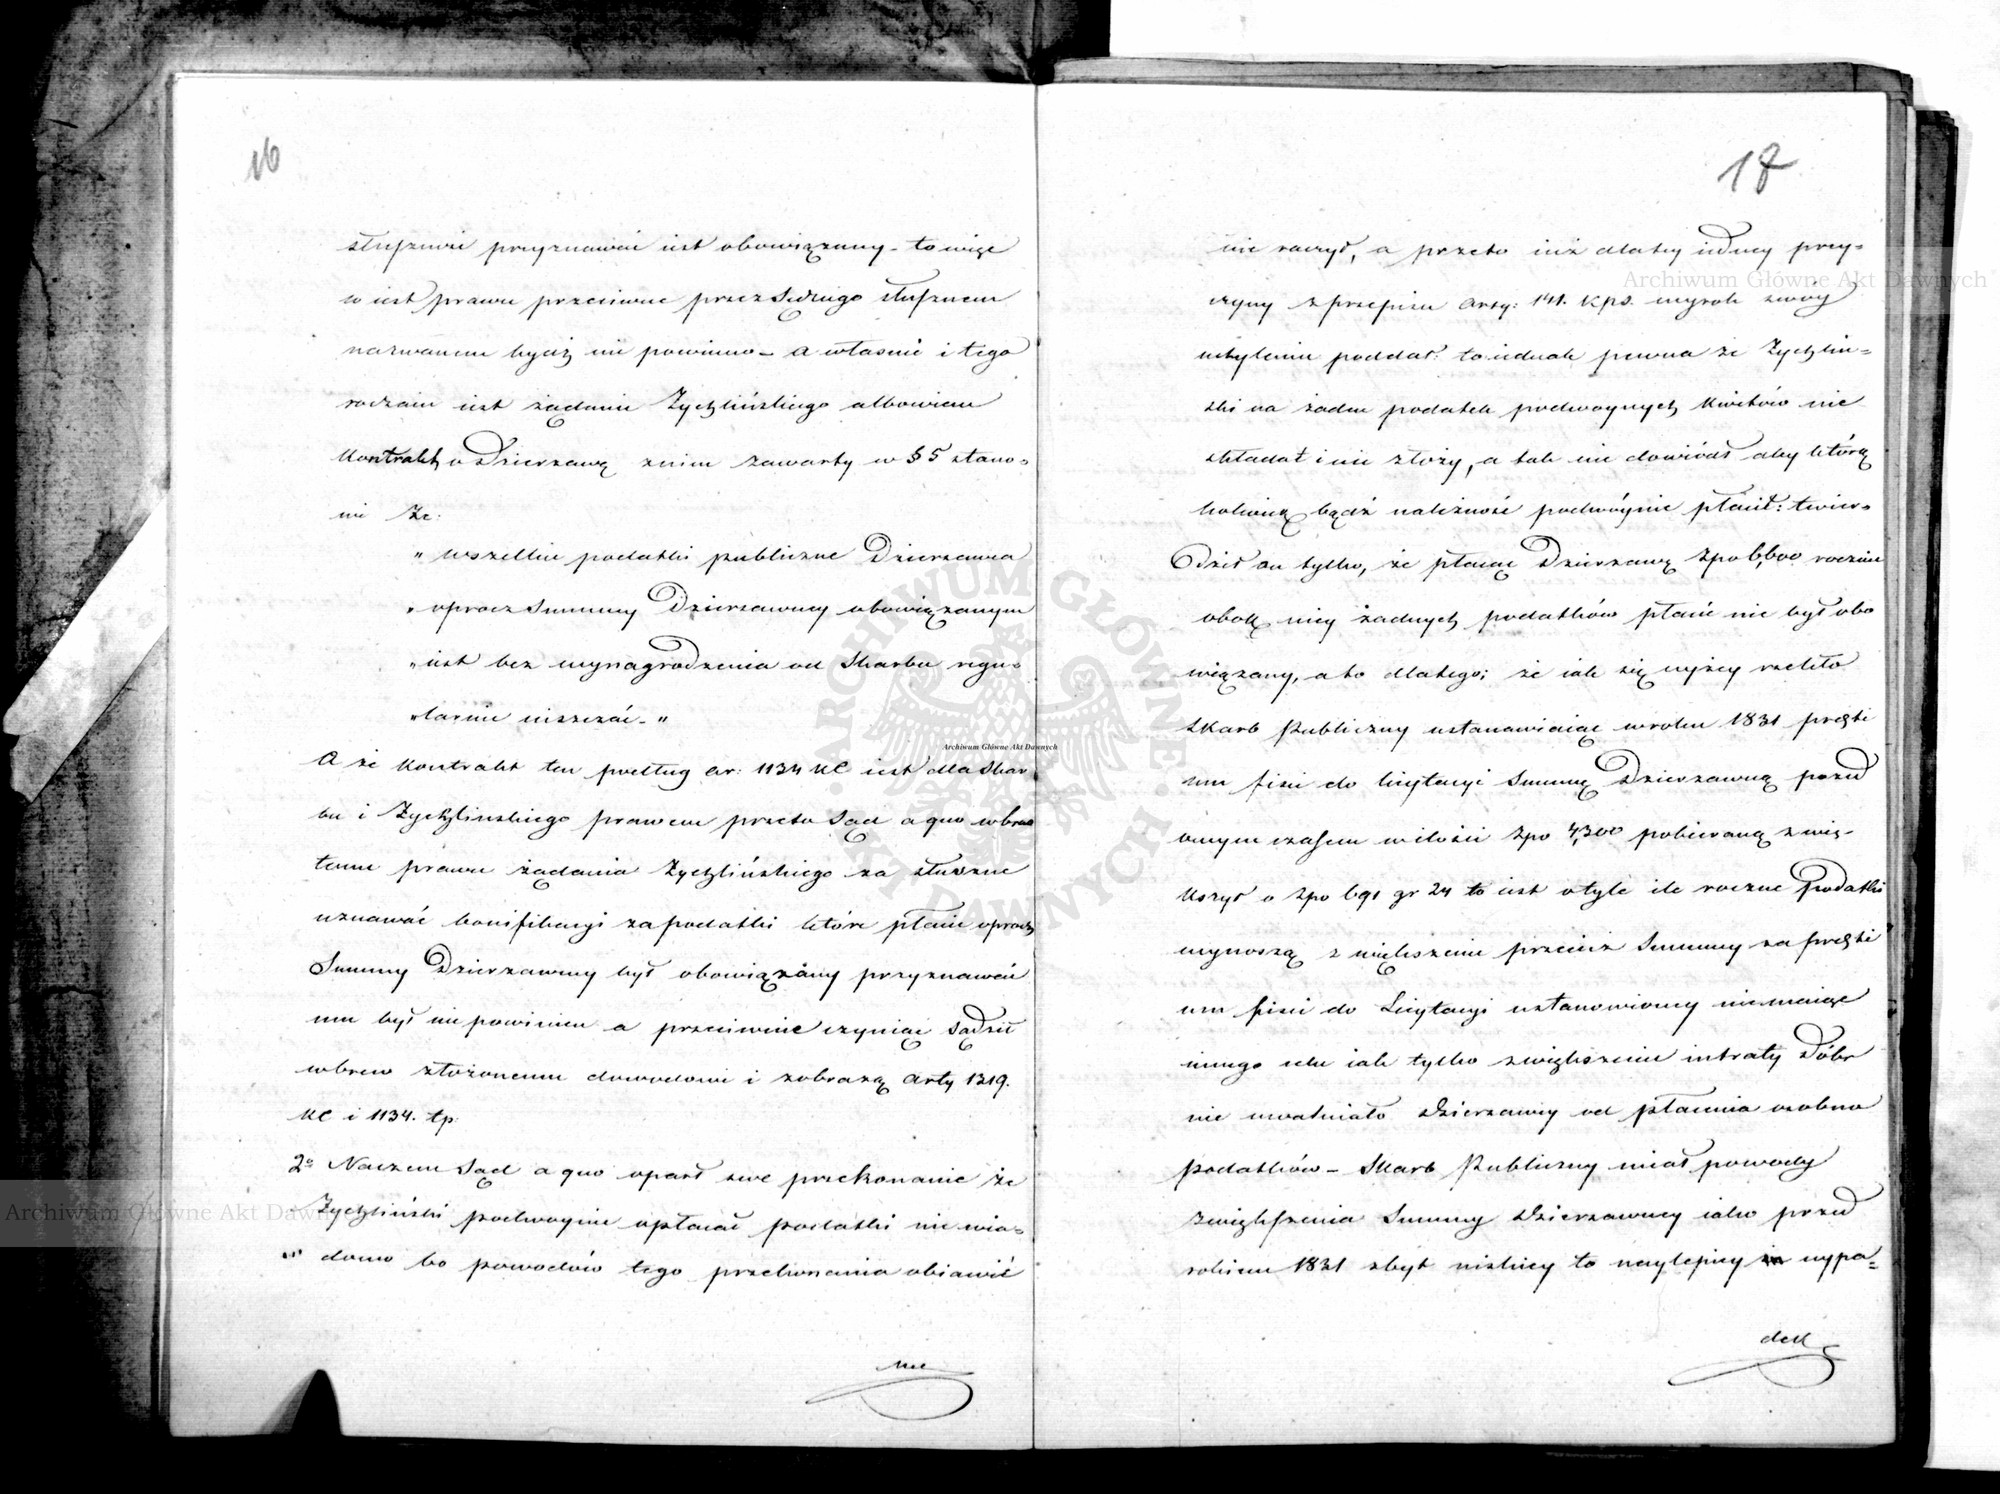 16
słuszność przyznawać iest obowiązany – to więc
co iest prawu przeciwne przez Sędziego słusznem
nazwanem bydź nie powinno – a właśnie i tego
rodzaiu iest żądanie Zychlińskiego albowiem
Kontrakt o Dzierzawę z nim zawarty w § 5 stano-
wi że:
„ Wszelkie podatki publiczne Dzierzawca
„ oprócz Summy Dzierzawney obowiązanym
„ iest bez wynagrodzenia od Skarbu regu-
„ larnie uiszczać – "
A że Kontrakt ten podług ar: 1134 KC iest dla Skar
bu i Zychlińskiego prawem przeto Sąd a quo wbrew
temu prawu żądania Zychlińskiego za słuszne
uznawać bonifikacyi za podatki które płacić oprócz
Summy Dzierzawney był obowiązany przyznawać
mu był nie powinien a przeciwnie czyniąc sądził
wbrew złożonemu dowodowi i z obrazą Arty 1319.
KC i 1134. tp.
2° Na czem Sąd a quo oparł swe przekonanie że
Zychliński podwoynie opłacał podatki nie wia-
domo bo powodów tego przekonania obiawić
nie
17
nie raczył, a przeto iuż dla tey iedney przy-
czyny z przepisu Arty: 141. Kps. wyrok swoy
uchyleniu poddał: to iednak pewna że Zychliń-
ski na żaden podatek podwoynych Kwitów nie
składał i nie złoży, a tak nie dowiódł aby którą
kolwiek bądź należność podwóynie płacił: twier-
dził on tylko, że płacąc Dzierzawę Zpo 6,600 rocznie
obok niey żadnych podatków płacić nie był obo
wiązany, a to dlatego; że iak się wyżey rzekło
Skarb Publiczny ustanawiaiąc w roku 1831 pretii
um fisci do licytacyi Summę Dzierzawną przed
owym czasem w ilości Zpo 4,300 pobieraną zwię-
kszył o Zpo 691 gr 24 to iest o tyle ile roczne podatki
wynoszą zwiększenie przecież Summy za preti
um fisci do Licytacyi ustanowioney nie maiąc
innego celu iak tylko zwiększenie intraty Dóbr
nie uwalniało Dzierzawcy od płacenia osobno
podatków – Skarb Publiczny miał powody
zwiększenia Summy Dzierzawney iako przed
rokiem 1831 zbyt niskiey to naylepiey wypa-
dek
Archiwum Główne Akt Dawnych
Archiwum Główne Akt Dawnych
Archiwum Główne Akt Dawnych
ARCHIWUM GŁÓWNE AKT DAWNYCH